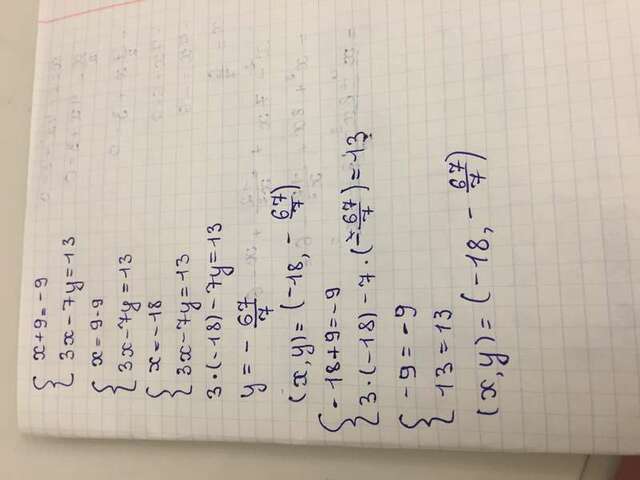 x+9=-9
3x-7y=13
x=9-9
3x-7y=13
x=-18
3x-7y=13
3•(-18)-7y=13
y=-67/7
(x,y)=(-18,-67/7)
-18+9=-9
3•(-18)-7•(-67/7)=13
-9=-9
13=13
(x,y)=(-18,-67/7)